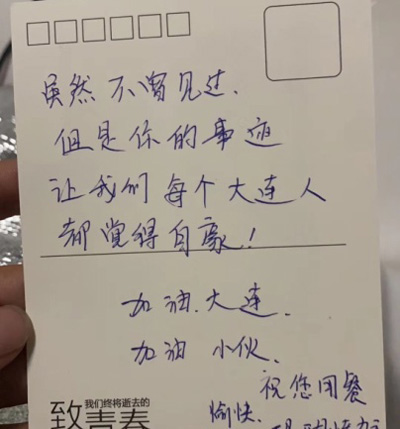 虽然不曾见过.
但是你的事迹
让我们每个大连人
都觉得自豪!
加油.大连.
加油 小伙.
祝您用餐
愉快.
我们终将逝去的
致青春